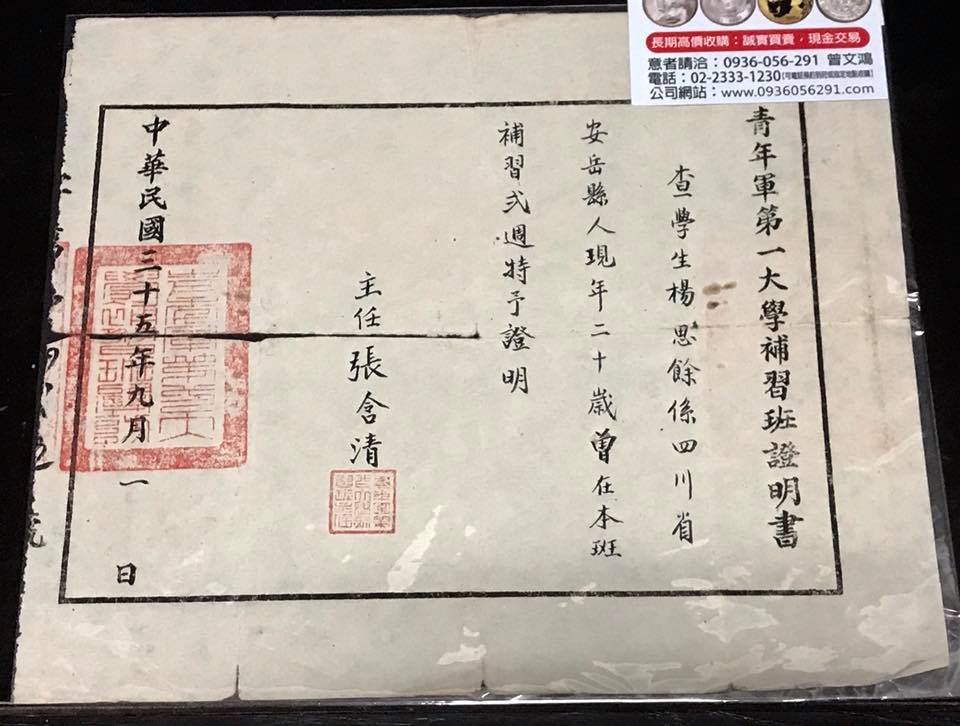 長期高價收購：誠實買賣，現金交易
意者請洽：0936-056-291 曾文鴻
電話：02-2333-1230
公司網站：www.0936056291.com
青年軍第一大學補習班證明書
查學生楊思餘係四川省
安岳縣人現年二十歲曾在本班
補習弍週特予證明
主任張含清
中華民國三十五年九月一日